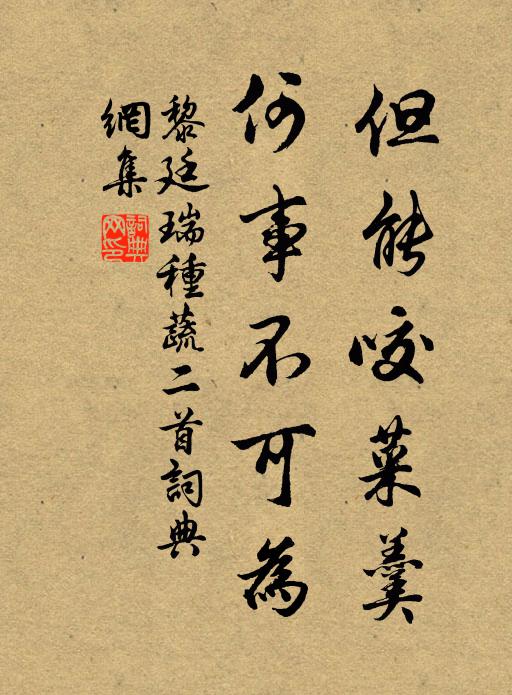 但能咬菜羹
何事不可為
黎廷瑞種蔬二首詞典
網集
詞典
网印